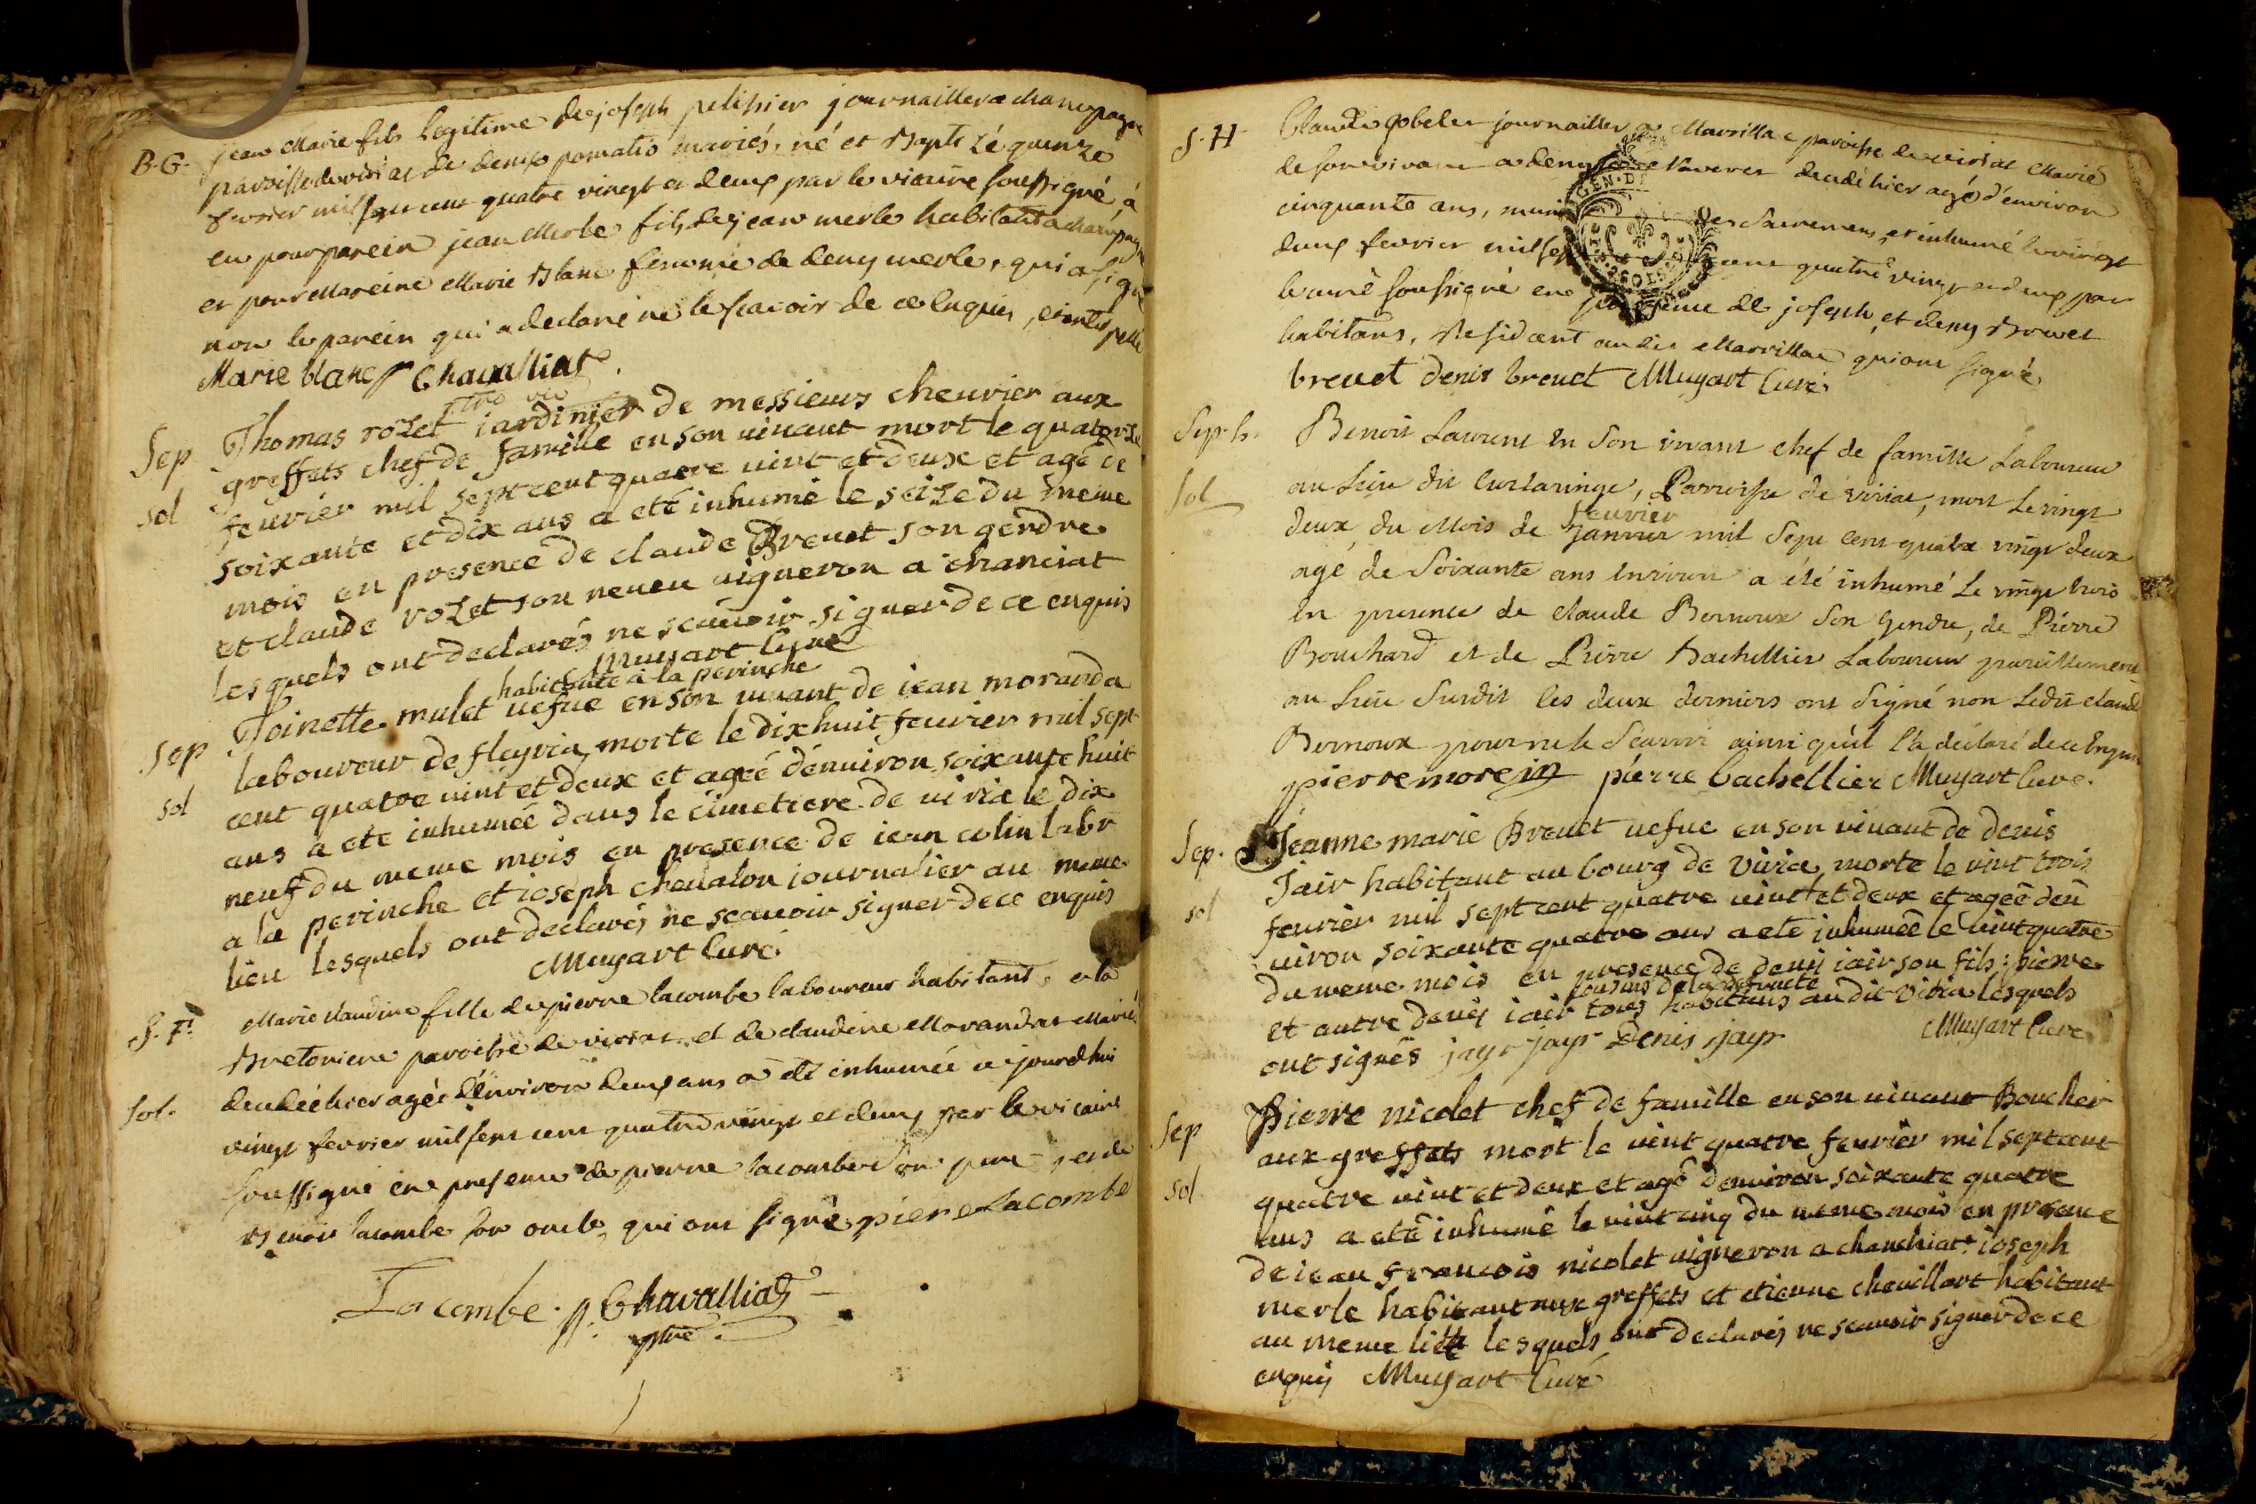 B.G. jean Marie fils legitime de joseph pelissier journaillier a champagne
paroisse de viriat et de denyse pomatio mariés, né et baptizé quinze
fevrier mil sept cent quatre vingt et deux par le vicaire soussigné, a
eu pour parein jean Merle fils de jean merle habitant a champagne
et pour Mareine Marie blanc femme de deny merle, qui a signé
non le parein qui a declaré ne le scavoir de ce enquis,
Marie blanc Chavalliat
Sep Thomas rozet jardinier de messieurs cheurier aux
greffets chef de famille en son uiuant mort le quatorze
sol feurier mil sept cent quatre uint et deux et agé de
soixante et dix ans a eté inhumé le seize du meme
mois en presence de claude Breuet son gendre
et claude rozet son neueu uigneron a chanciat
lesquels ont declarés ne scauoir signer de ce enquis
Muyart Curé
habitante a la perinche
Sep Toinette mulet uefue en son uiuant de iean moranda
laboureur de fleyria morte le dixhuit feurier mil sept
sol cent quatre uint et deux et ageé denuiron soixante huit
ans a ete inhumée dans le cimetiere de uiria le dix
neuf du meme mois en presence de iean colin labr
a la perinche et ioseph cheualon journalier au meme
lieu lesquels ont declarés ne scauoir signer de ce enquis
Muyart Curé
S. F. Marie claudine fille de pierre lacombe laboureur habitant, a la
bretoniere paroisse de viriat et de claudine Morandat Mariés
decedée hier agée d'environ deux ans a été inhumée ce jourdhui
sol. vingt fevrier mil sept cent quatre vingt et deux par le vicaire
soussigné en presence de pierre lacombe son pere et de
benoit lacombe son oncle, qui ont signé, piere lacombe
Lacombe. Chavalliat
ptre
S. H. Claude gobelet journaillier a Marsillac paroisse de viriat Marié
de son vivant a denyse decedé hier agé d'environ
cinquante ans, muni des Sacremens, et inhumé le vingt
GEN. D
deux fevrier mil sept cent quatre vingt et deux par
le curé soussigné en presence de joseph et deny brevet
habitans, residant au dit Marsillac qui ont signé
breuet denis breuet Muyart Curé
Sep. h. Benoit Laurent en son vivant chef de famille Laboureur
Sol au Lieu dit Curtaringe, Parroisse de viriat, mort le vingt
feurier
deux, du Mois de Janvier mil Sept cent quatre vingt deux
agé de Soixante ans environ a été inhumé Le vingt trois
en presence de claude Bernoux Son Gendre, de Pierre
Bouchard et de Pierre Bachellier Laboureur pareillement
au Lieu Surdit les deux derniers ont Signé non Ledit claude
Bernoux pour ne le Scavoir ainsi qu'il l'a déclaré de ce enquis
pierre morein pierre bachellier Muyart Curé.
Sep. Jeanne marie Breuet uefue en son uiuant de denis
Jair habitant au bourg de Viria morte le uint trois
sol feurier mil sept cent quatre uint et deux et ageé den
uiron soixante quatre ans a eté inhumeé le uint quatre
du meme mois en presence de denis iair son fils: pierre
cousins de la defuncte
et autre denis iair tous habitans au dit Viria lesquels
ont signés jayr jayr Denis jayr Muyart Curé
Sep Pierre nicolet chef de famille en son uiuant Boucher
aux greffets mort le uint quatre feurier mil sept cent
sol quatre uint et deux et agé denuiron soixante quatre
ans a eté inhumé le uint cinq du meme mois en presence
de iean francois nicolet uigneron a chanchiat ioseph
merle habitant aux greffets et etienne cheuillart habitant
au meme lieu lesquels ont declarés ne scauoir signer de ce
enquis Muyart Curé